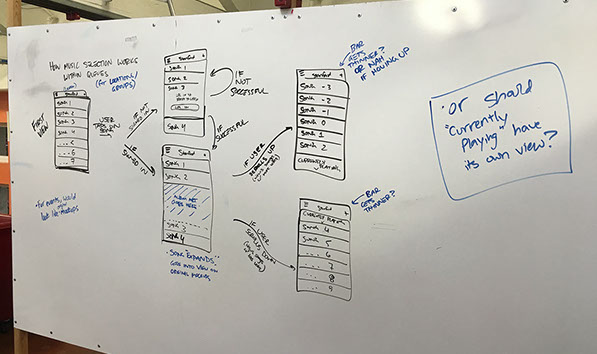 HOW MUSIC SELECTION WORKS
WITHIN QUEUES
(for locations/
groups)
FIRST
VIEW
SONG 1
SONG 2
SONG 3
SONG 4
5
6
7
USER
TAPS ON
SONG
IF NOT
IF
SIGNED IN
SONG 1
SONG 2
SONG 3
SONG 4
IF
NOT
SUCCESSFUL
IF
SUCCESSFUL
SONG 1
SONG 2
ALBUM ART
GOES HERE
SONG 3
SONG 4
SONG EXPANDS
IF USER
SCROLLS UP
IF
USER
SCROLLS DOWN
BAR
GETS
THINNER?
OR NAH
IF MOVING UP
SONG -3
SONG -2
SONG -1
SONG 0
SONG 1
SONG 2
CURRENTLY PLAYING
BAR
GETS
THINNER?
CURRENTLY PLAYING
SONG 4
SONG 5
... 6
... 7
... 8
... 9
For events, would
look like mockups
"Or should
"Currently
Playing" have
its own view?